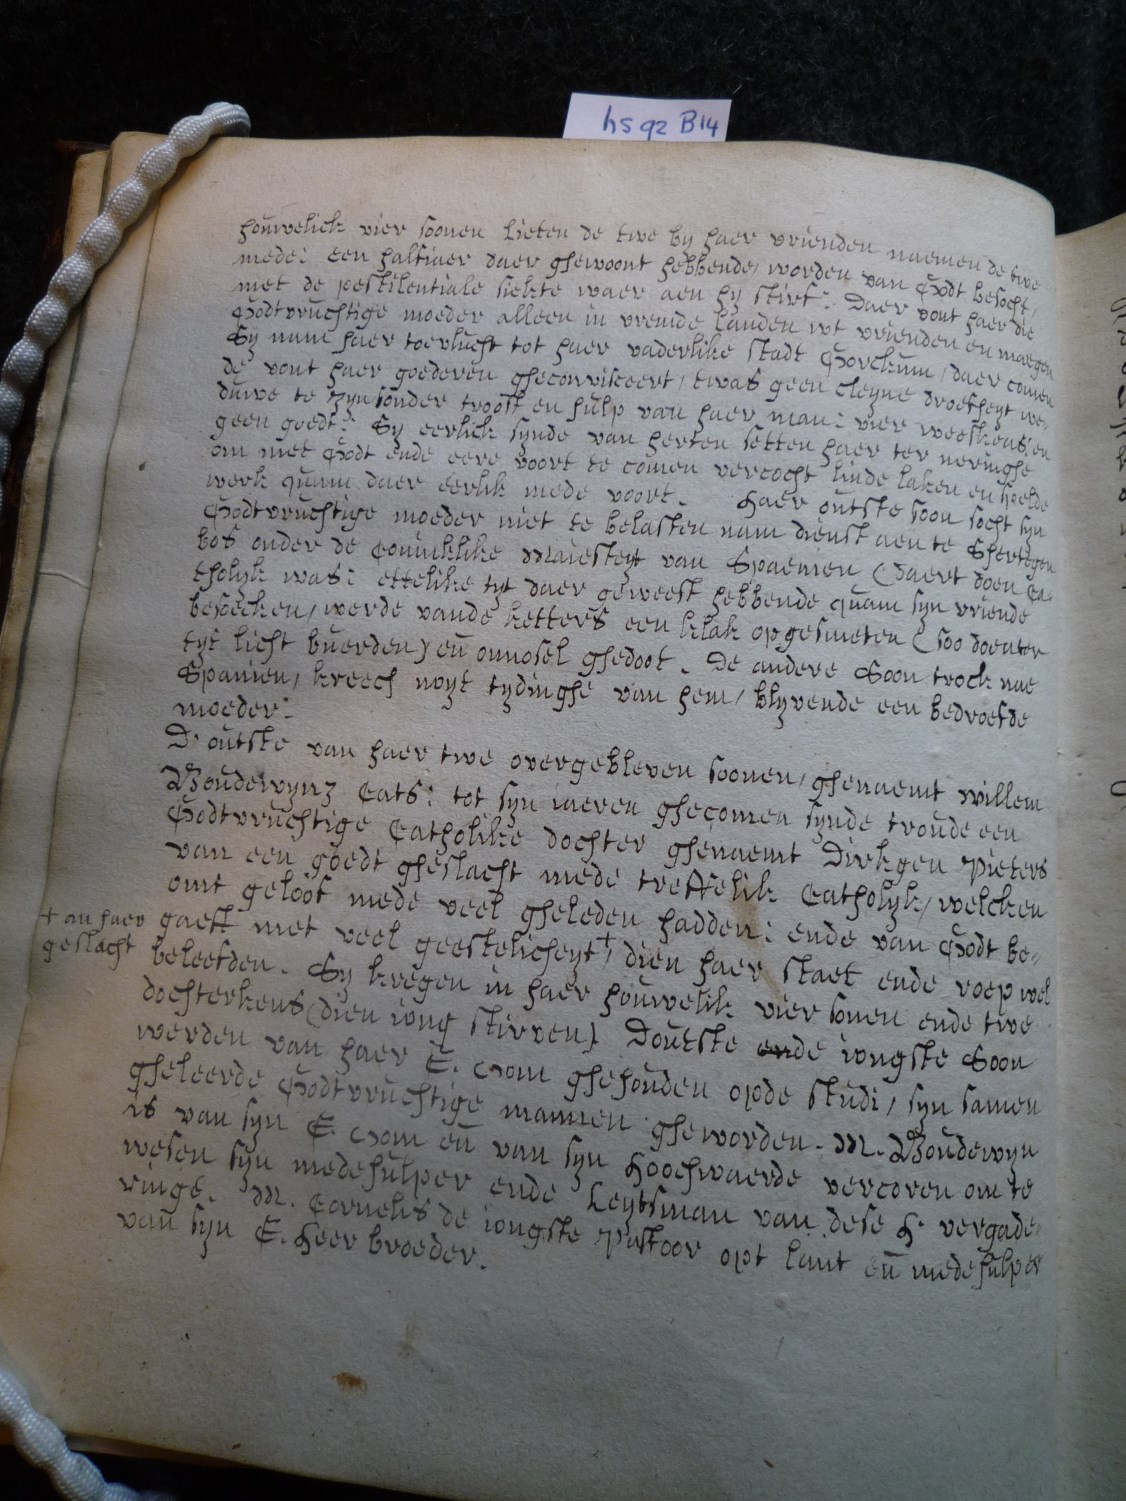 hs 92 B14
houwelick vier soonen lieten de twe by haer vrienden naemen de twe
mede: een halfiaer daer ghewoont hebbende, worden van Godt besocht,
met de pestilentiale siekte waer aen hy stirf: Daer vont haer die
Godtvruchtige moeder alleen in vremde landen wt vrienden en maegen
Sy nam haer toevlucht tot haer vaderlike stadt Gorckum, daer comen
de vont haer goederen gheconfisceert, twas geen cleyne droefheyt we,
duwe te zyn sonder troost en hulp van haer man: vier weeskens, en
geen goedt: Sy eerlick synde van herten setten haer ter neringhe
om met Godt ende eere voort te comen vercocht linde laken en spelde
werk quam daer eerlik mede voort. Haer outste soon socht syn
Godtvruchtige moeder niet te belasten nam dienst aen te Shertogen
bos onder de Conincklike Maiesteyt van Spaenien (daert doen Ca-
tholyk was: ettelike tyt daer geweest hebbende quam syn vriende
besoecken, werde vande ketters een klak opgesmeten (soo doenter
tyt licht buerden) en onnosel ghedoot. De andere Soon trock nae
Spanien, kreech noyt tydinghe van hem, blyvende een bedroefde
moeder:
D'outste van haer twe overgebleven soonen, ghenaemt willem
Boudewynz Cats: tot syn iaeren ghecomen synde troude een
Godtvruchtige Catholike dochter ghenaemt Dirkgen Pieters
van een goedt gheslacht mede treffelik Catholyk, welcken
omt geloof mede veel gheleden hadden: ende van Godt be-
gaeft met veel geestelicheyt, + dien haer staet ende roep wel
+ an haer
geslacht
beleefden. Sy kregen in haer houwelik vier sonen ende twe
dochterkens (dien iong stirven) Doutste ende iongste Soon
werden van haer E. Oom ghehouden opde studi, syn samen
gheleerde Godtvruchtige mannen gheworden. M. Boudewyn
is van syn E. Oom en van syn Hoochwaerde vercoren om te
wesen syn medehulper ende Leytsman van dese H. vergade-
ringe. M. Cornelis de iongste Pastoor opt lant en medehulper
van syn E. Heer broeder.